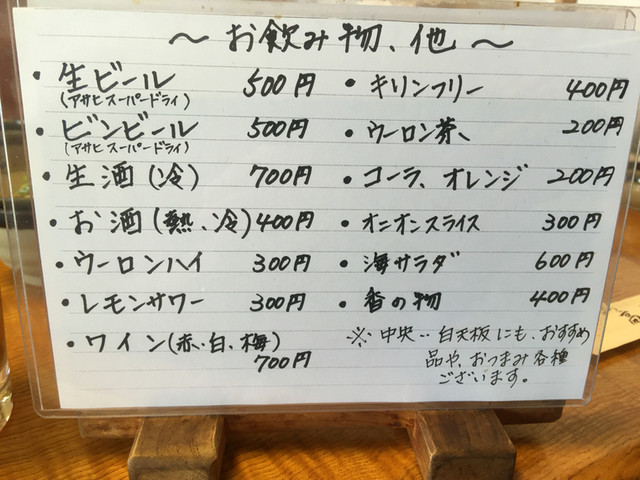 ～お飲み物、他～
・生ビール 500円
(アサヒスーパードライ)
・ビンビール 500円
(アサヒスーパードライ)
・生酒(冷) 700円
・お酒(熱、冷) 400円
・ウーロンハイ 300円
・レモンサワー 300円
・ワイン(赤、白、梅)
700円
・キリンフリー 400円
・ウーロン茶、 200円
・コーラ、オレンジ 200円
・オニオンスライス 300円
・海サラダ 600円
・香の物 400円
※中央‥白天板にも、おすすめ
品や、おつまみ各種
ございます。